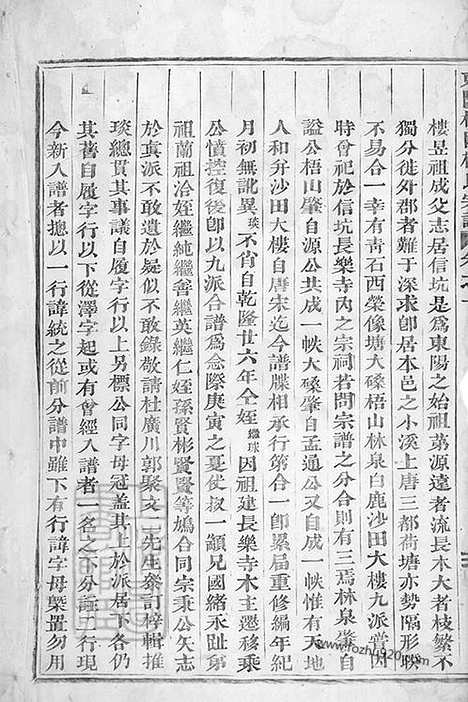 樓昱祖成父志居信坑是爲東陽之始祖第源遠者流長木大者枝繁不
獨分徙外郡者難于深求卽居本邑之小溪上唐三都荷塘亦勢隔形睽
不易合一幸有靑石西塋像塘大磉梧山林泉白鹿沙田大樓九派嘗因
時會祀於信坑長樂寺內之宗祠若問宗譜之分合則有三焉林泉肇自
謚公梧山肇自源公共成一帙大磉肇自孟通公又自成一帙惟有天地
人和弁沙田大樓自唐宋迄今譜牒相承行第合一卽累屆重修編年紀
月初無訛異琰不肖自乾隆廿六年仝姪繼球因祖建長樂寺木主遷移乘
公憤控復後卽以九派合譜爲念際庚寅之夏伏叔一顓兄國緒永趾第
祖蘭祖洽姪繼純繼睿繼英繼仁姪孫賢彬賢賢等鳩合同宗秉公矢志
於眞派不敢遺於疑似不敢錄敬請杜廣川郭聚文二先生叅訂梓輯推
琰總貫其事議自履字行以上另標公同字母冠蓋其上於派居下各仍
其舊自履字行以下從澤字起或有曾經入譜者一名之下分註二行現
今新入譜者摠以一行諱統之從前分譜中雖下有行諱字母槩置勿用
www.fozhu920.com